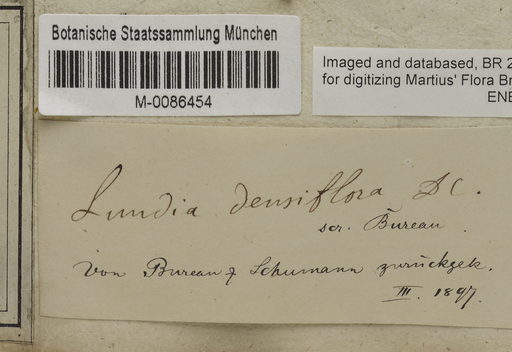 Botanische Staatssammlung München
M-0086454
Imaged and databased, BR 2
for digitizing Martius' Flora Br
ENE
Lundia densiflora DC.
scr. Bureau.
Von Bureau & Schumann zurückgek.
III. 1897.